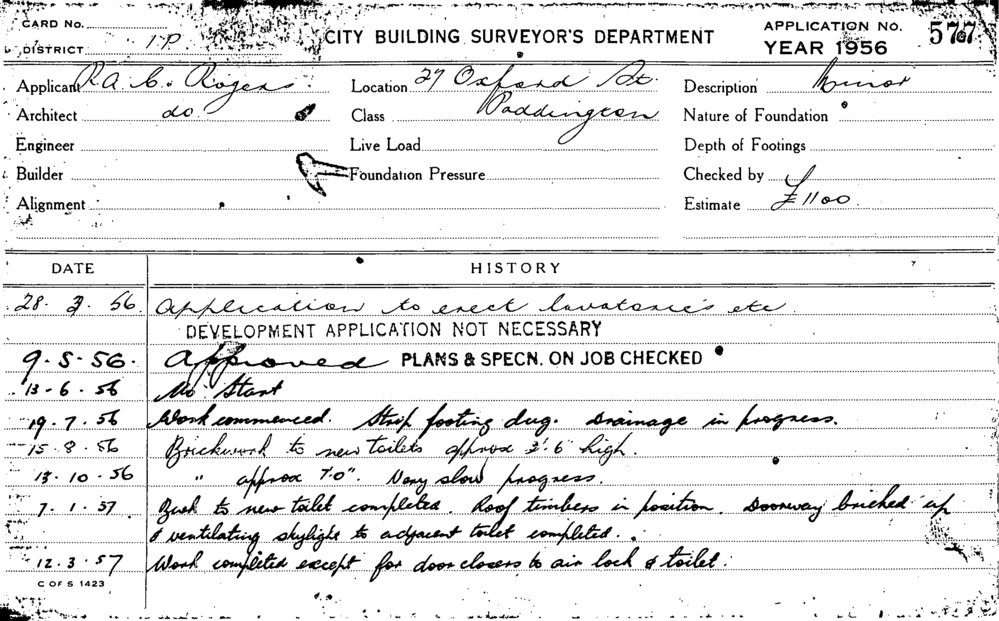 CARD No.
DISTRICT I.P.
CITY BUILDING SURVEYOR'S DEPARTMENT
APPLICATION No. 577
YEAR 1956
Applicant R.A.C. Rogers. Location 27 Oxford St. Description Minor
Architect do. Class Paddington Nature of Foundation
Engineer Live Load Depth of Footings
Builder Foundation Pressure Checked by
Alignment Estimate £1100
DATE HISTORY
28. 3. 56 Application to erect lavatories etc
DEVELOPMENT APPLICATION NOT NECESSARY
9. 5. 56. Approved PLANS & SPECN. ON JOB CHECKED
13. 6. 56 No Start
19. 7. 56 Work commenced. Strip footing dug. Drainage in progress.
15. 8. 56 Brickwork to new toilets approx 3'.6" high.
13. 10. 56 " approx 7'.0". Very slow progress.
7. 1. 57 to new toilet completed. Roof timbers in position. Doorway bricked up
& ventilating skylight to adjacent toilet completed.
12. 3. 57 Work completed except for door closers to air lock & toilet.
C OF S 1423